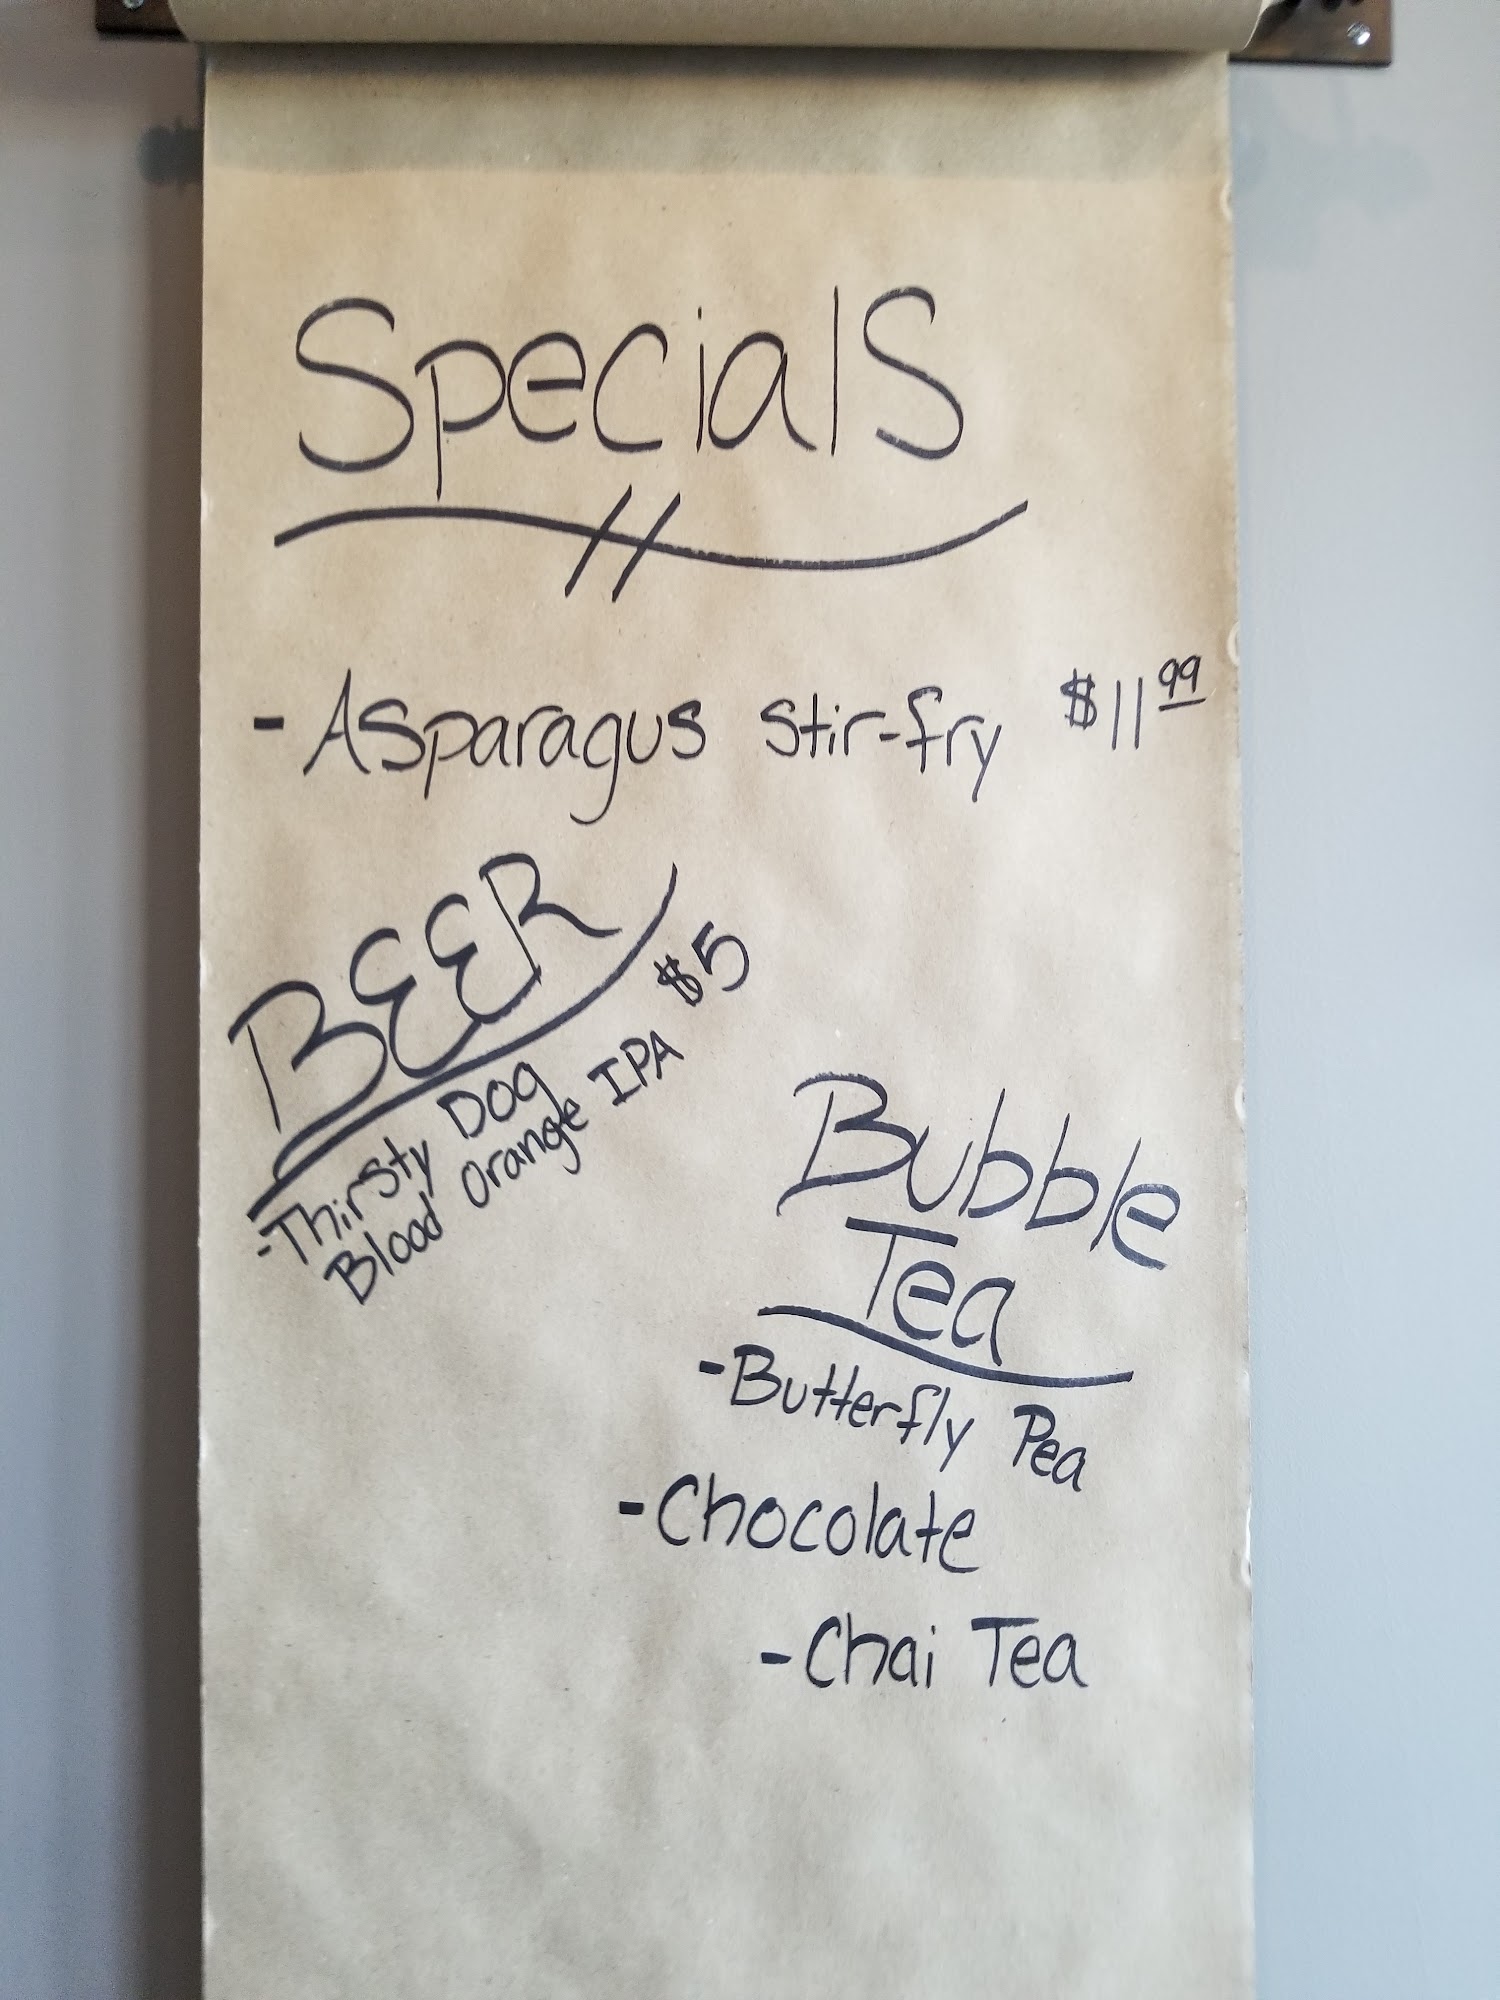 Specials
- Asparagus stir-fry $11.99
BEER
- Thirsty Dog
Blood Orange IPA $5
Bubble
Tea
- Butterfly Pea
- Chocolate
- Chai Tea